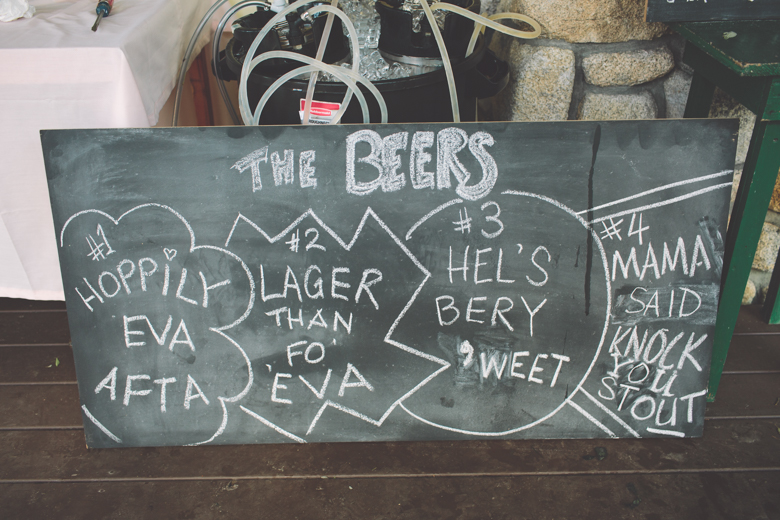 THE BEERS
#1
HOPPiLY
EVA
AFTA
#2
LAGER
THAN
FO'
EVA
#3
HEL'S
BERY
'WEET
#4
MAMA
SAID
KNOCK
YOU
STOUT